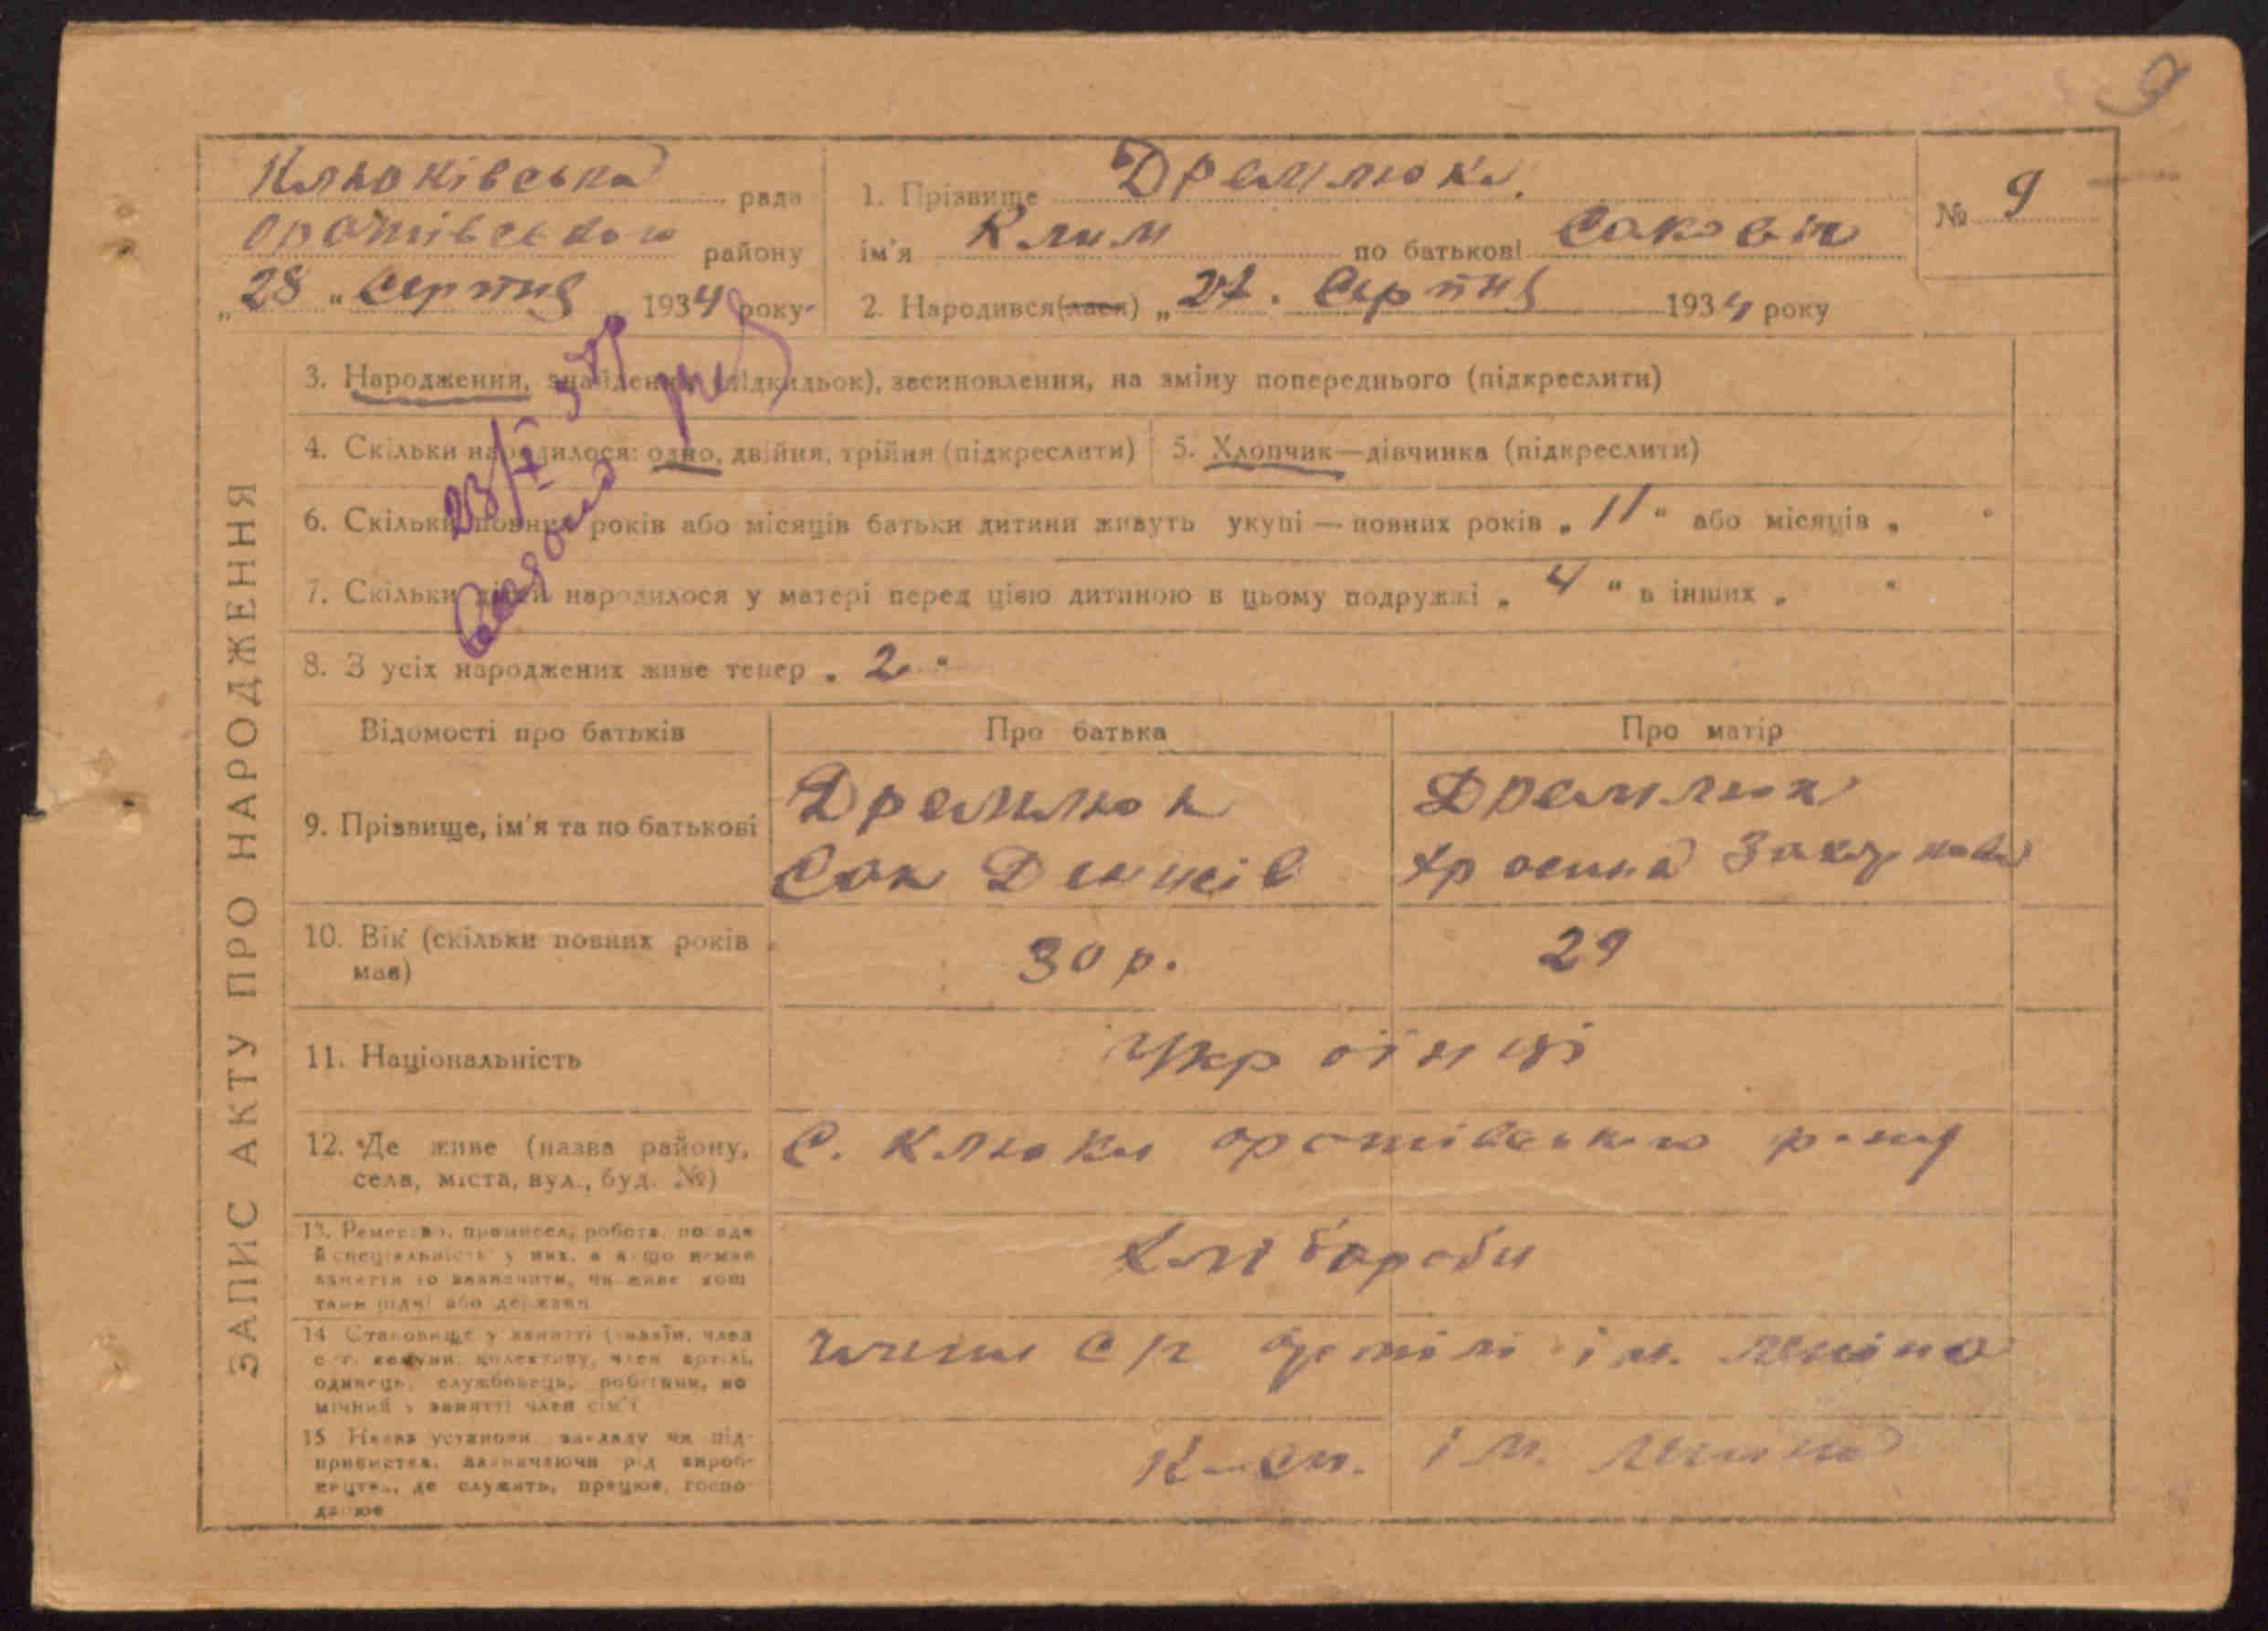 9
Клюківська рада
оратівського району
„28 " серпня „ 1934 року
1. Прізвище Дремлюк
ім'я Клим по батькові Саковіч
2. Народився(лася) „ 27. Серпня 1934 року
№ 9
ЗАПИС АКТУ ПРО НАРОДЖЕННЯ
3. Народження, знайдення (підкидьок), засиновлення, на зміну попереднього (підкреслити)
4. Скільки народилося: одно, двійня, трійня (підкреслити)
5. Хлопчик—дівчинка (підкреслити)
6. Скільки повних років або місяців батьки дитини живуть укупі — повних років „ 11 " або місяців „ "
7. Скільки дітей народилося у матері перед цією дитиною в цьому подружжі „ 4 " в інших „ "
8. З усіх народжених живе тепер „ 2 "
23/X
Відомості про батьків
Про батька
Про матір
9. Прізвище, ім'я та по батькові
Дремлюк
Сак
Дремлюк
10. Вік (скільки повних років має)
30 р.
29
11. Національність
Украінці
12. Де живе (назва району,
села, міста, вул., буд. №)
С. Клюки оратівського р-ну
13. Ремество, промисел, робота, посада
й спеціальність у них, а якщо немає
заняття то визначити, чи живе кош
тами рідні або держави
хлібороби
14 Становище у занятті (хазяїн, член
с. г. комуни, колективу, член артілі,
одинець, службовець, робітник, по
мічний у занятті член сім'ї
члени с/г артілі ім. Леніна
15 Назва установи, закладу чи під-
приємства, зазначаючи рід вироб-
ництва, де служить, працює, госпо-
дарює
ім. Леніна